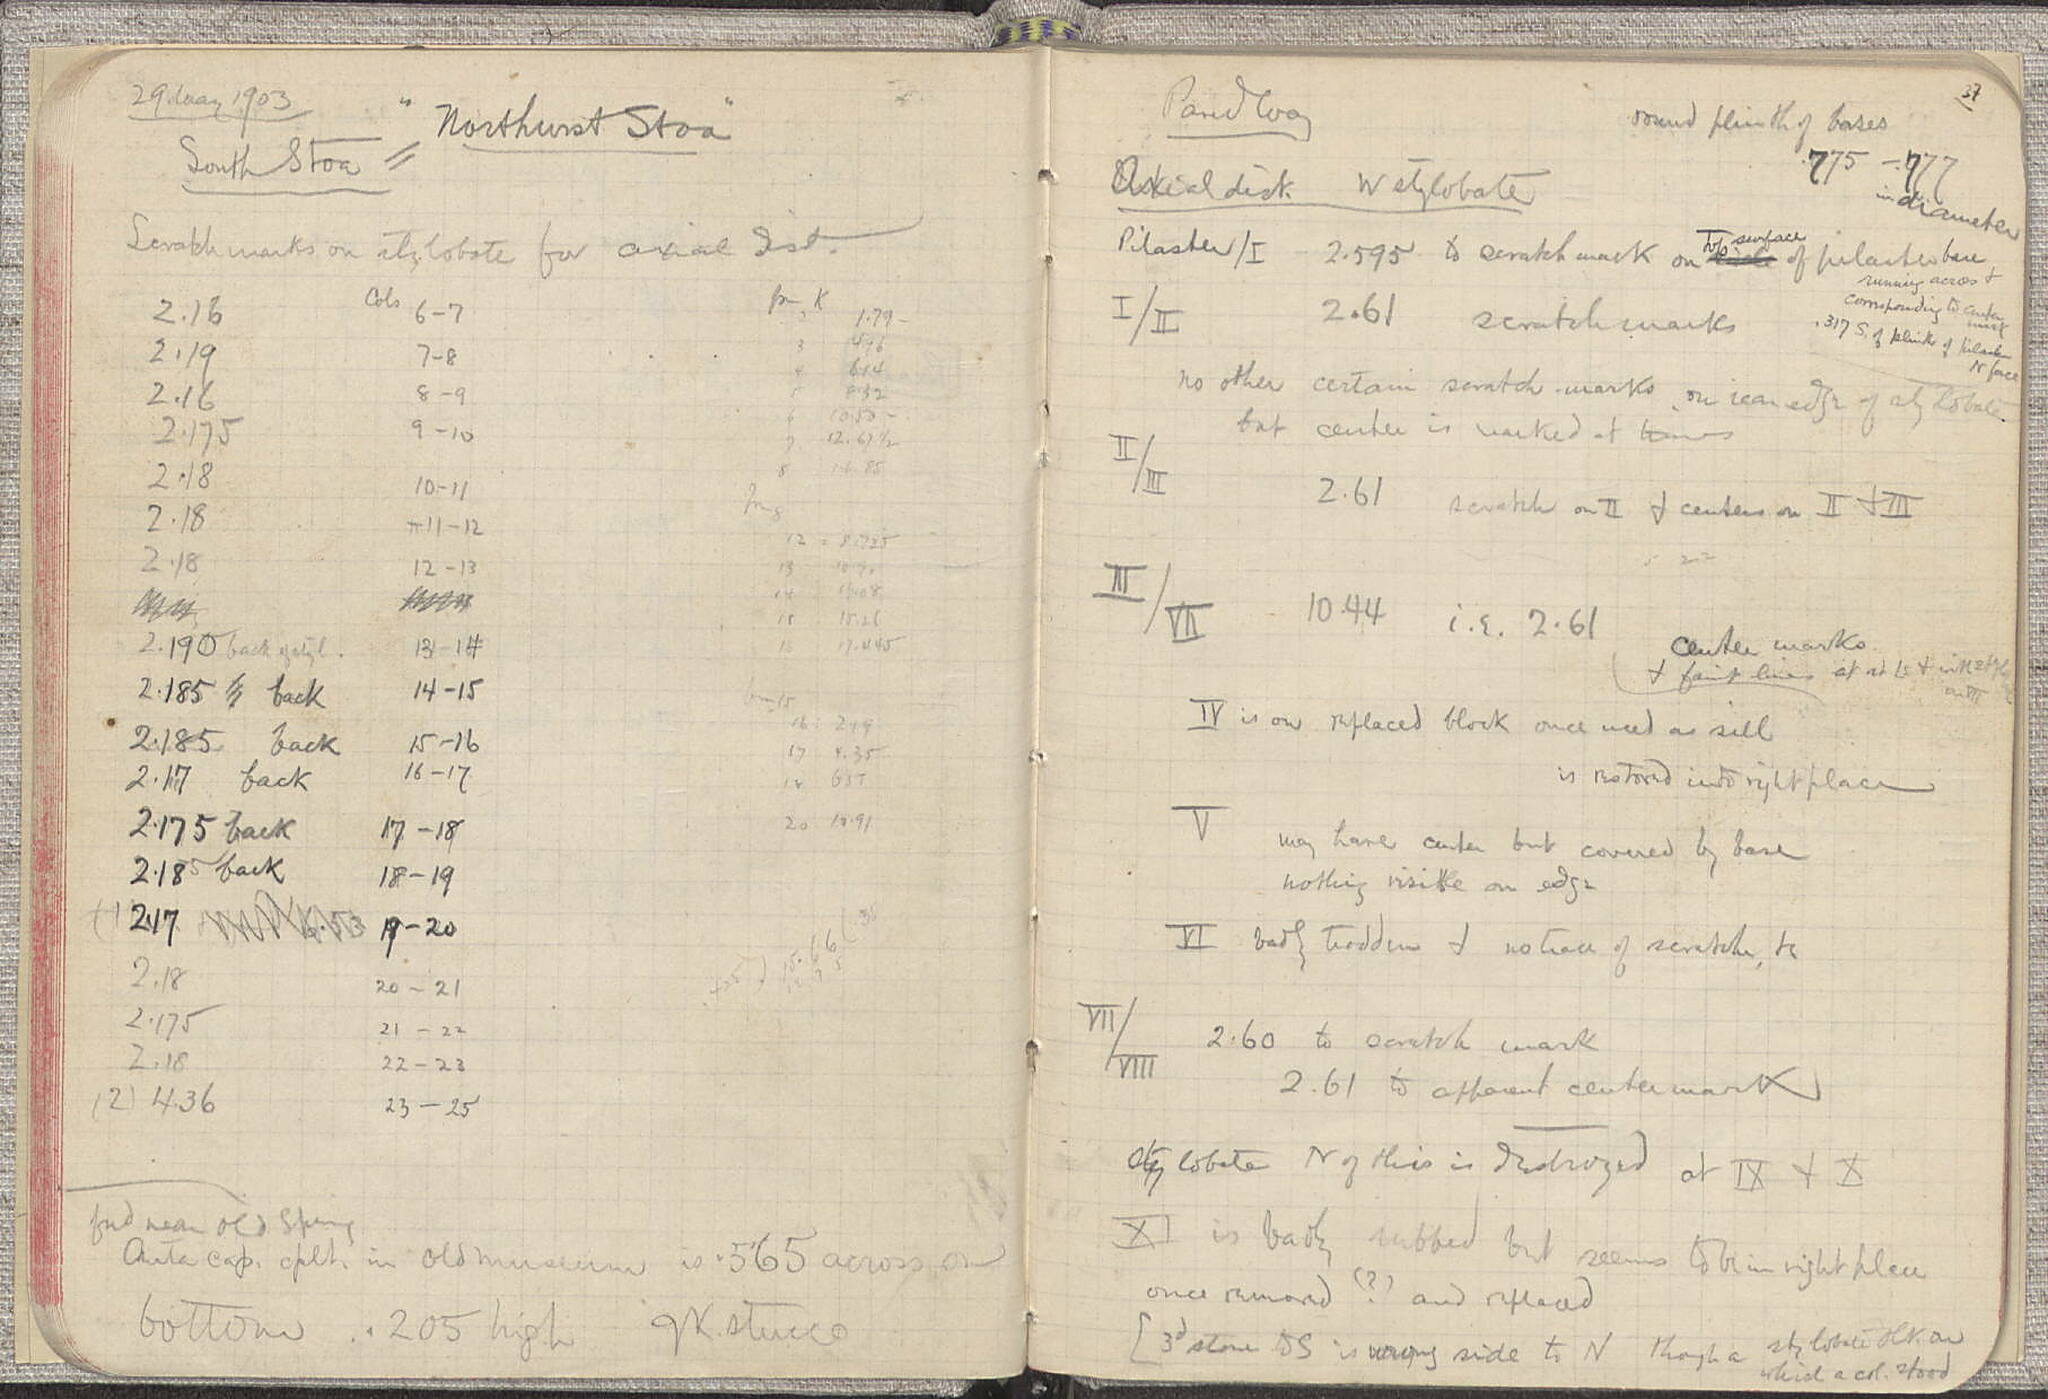 29 May 1903
"Northwest Stoa"
South Stoa =
Scratch marks on stylobate for axial dist.
2.16 Cols 6-7
2.19 7-8
2.16 8-9
2.175 9-10
2.18 10-11
2.18 11-12
2.18 12-13
2.190 back of styl. 13-14
2.185 back 14-15
2.185 back 15-16
2.17 back 16-17
2.175 back 17-18
2.185 back 18-19
(1) 2.17 19-20
2.18 20-21
2.175 21-22
2.18 22-23
(2) 4.36 23-25
1.79
3 4.96
4 6.14
5 8.32
6 10.50
7 12.67 1/2
8 14.85
12 = 8.725
13
14 13.08
15 15.26
16 17.445
15
16 = 2.19
17 4.35
18
20 10.91
fnd near Old Spring
Anta cap. cplt. in old museum is .565 across on
bottom .205 high GK. stucco
37
Paved Way
round plinth of bases
.775 - .777
in diameter
Axial dist. W stylobate
Pilaster/I 2.595 to scratch mark on top surface of pilaster base
running across &
corresponding to center
mark
.317 S. of plinth of pilaster
N face
I/II 2.61 scratch marks
no other certain scratch-marks on rear edge of stylobate.
but center is marked at times
II/III 2.61 scratch on II & centers on II & III
III/VII 10.44 i.e. 2.61
center marks
& faint lines at
on III
IV is on replaced block once used as sill
is restored into right place
V may have center but covered by base
nothing visible on edge
VI badly trodden & no trace of scratches, &c
VII/VIII 2.60 to scratch mark
2.61 to apparent center mark
Stylobate N of this is destroyed at IX & X
XI is badly rubbed but seems to be in right place
once removed (?) and replaced
[3d stone to S is wrong side to N though a stylobate blk. on
which a col. stood